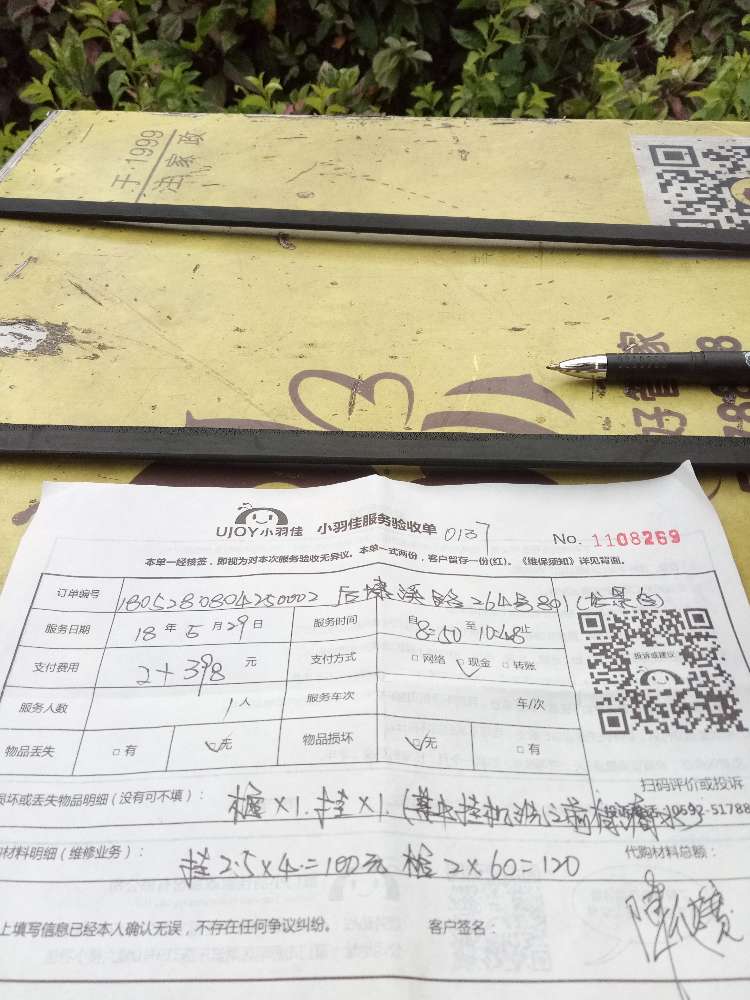 于 1999
洁家政
好管家
UJOY小羽佳 小羽佳服务验收单 0137 No. 1108269
本单一经核签，即视为对本次服务验收无异议。本单一式两份，客户留存一份(红)。《维保须知》详见背面。
订单编号 1805280804250002 后埭溪路264号801
服务日期 18 年 5 月 29 日 服务时间 自 8:50 至 10:48 止
投诉或建议
支付费用 2+398 元 支付方式 □网络 ☑现金 □转账
服务人数 1 人 服务车次 车/次
物品丢失 □有 ☑无 物品损坏 ☑无 □有
扫码评价或投诉
损坏或丢失物品明细（没有可不填）： 柜×1. 挂×1.
0592-51788
材料明细（维修业务）： 挂2.5×4=100元 柜2×60=120 代购材料总额：
上填写信息已经本人确认无误，不存在任何争议纠纷。 客户签名：